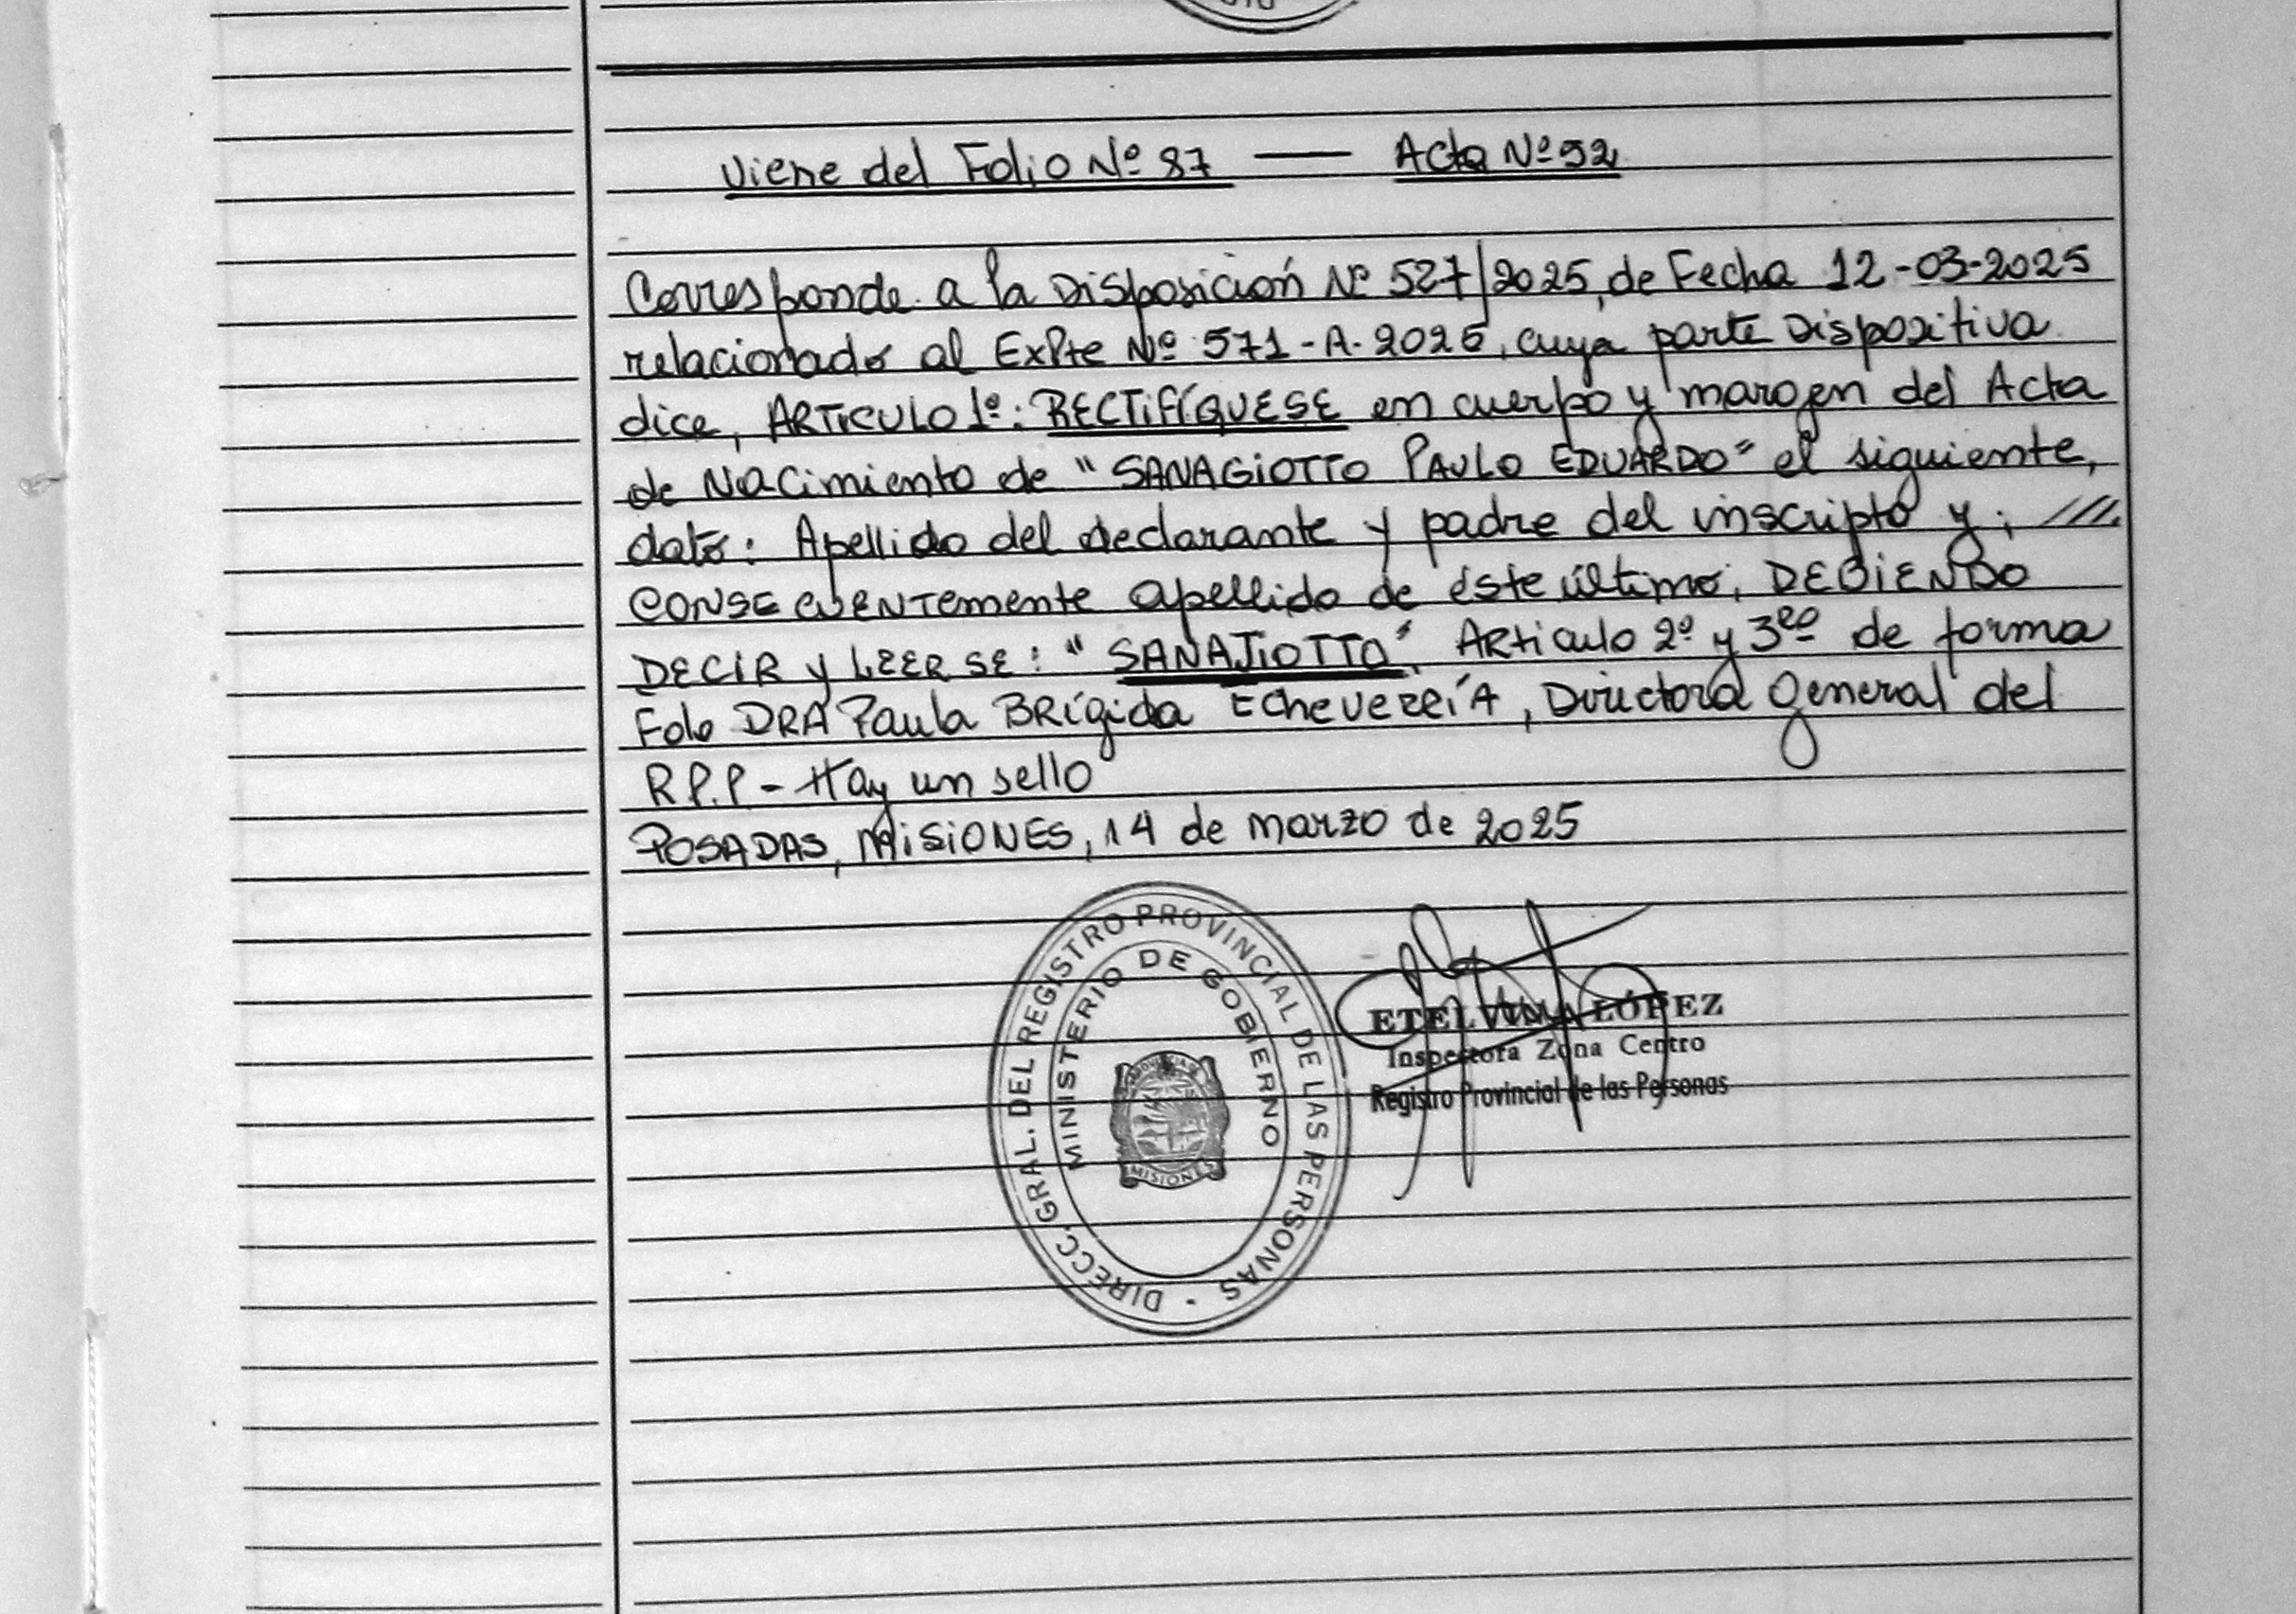 Viene del Folio Nº 87 — Acta Nº 92
Corresponde a la Disposición Nº 527/2025, de Fecha 12-03-2025
relacionado al ExPte Nº 571-A-2025, cuya parte Dispositiva
dice, ARTICULO 1º: RECTIFÍQUESE en cuerpo y margen del Acta
de Nacimiento de "SANAGIOTTO PAULO EDUARDO" el siguiente,
dato: Apellido del declarante y padre del inscripto y; ///.
CONSECUENTemente apellido de éste último, DEBIENDO
DECIR y LEERSE: "SANAJIOTTO". Articulo 2º y 3ro de forma
Fdo DRA Paula BRígida EcheverríA, Directora General del
R.P.P - Hay un sello
POSADAS, MISIONES, 14 de marzo de 2025
DIRECC. GRAL. DEL REGISTRO PROVINCIAL DE LAS PERSONAS
MINISTERIO DE GOBIERNO
MISIONES
ETELVINA LÓPEZ
Inspectora Zona Centro
Registro Provincial de las Personas